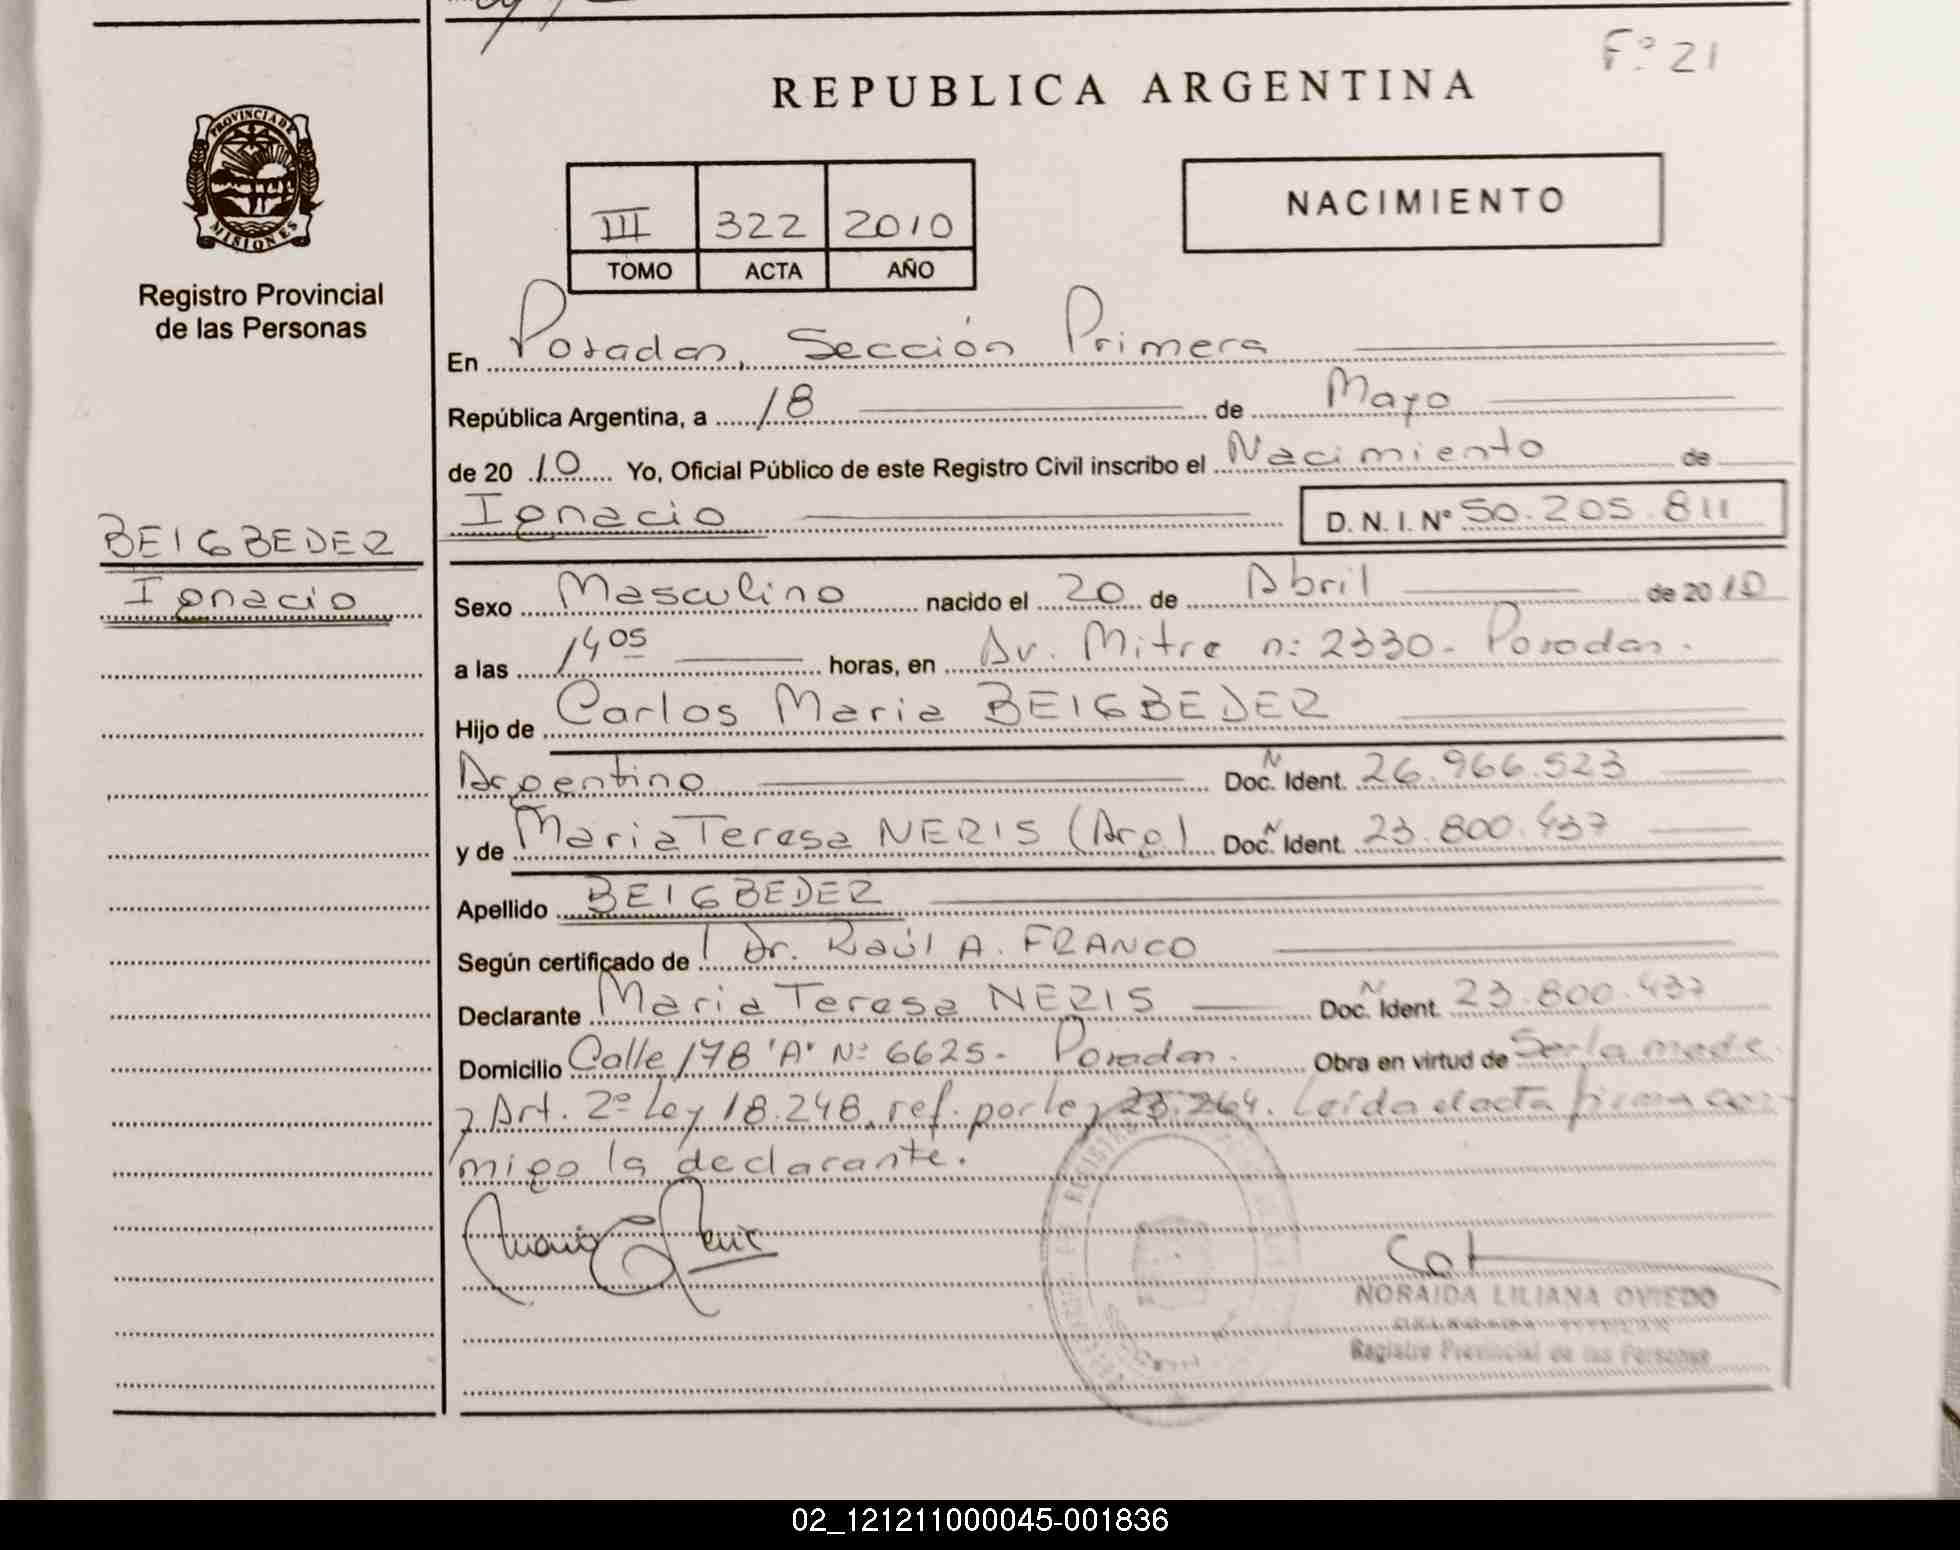 F.º 21
REPUBLICA ARGENTINA
PROVINCIA DE
MISIONES
Registro Provincial
de las Personas
III 322 2010
TOMO ACTA AÑO
NACIMIENTO
En Posadas, Sección Primera
República Argentina, a 18 de Mayo
de 20 10 Yo, Oficial Público de este Registro Civil inscribo el Nacimiento de
Ignacio D. N. I. Nº 50.205.811
BEIGBEDER
Ignacio
Sexo Masculino nacido el 20 de Abril de 20 10
a las 14 05 horas, en Av. Mitre n: 2330 - Posadas.
Hijo de Carlos Maria BEIGBEDER
Argentino Doc. Ident. N 26.966.523
y de Maria Teresa NERIS (Arg) Doc. Ident. N 23.800.437
Apellido BEIGBEDER
Según certificado de Dr. Raúl A. FRANCO
Declarante Maria Teresa NERIS Doc. Ident. N 23.800.437
Domicilio Calle 178 "A" Nº 6625 - Posadas. Obra en virtud de Ser la madre
y Art. 2º Ley 18.248, ref. por ley 23.264. Leída el acta firma con-
migo la declarante.
NORAIDA LILIANA OVIEDO
Registro Provincial de las Personas
02_121211000045-001836